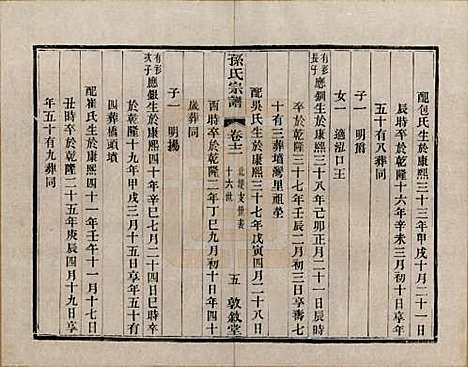 配包氏生於康熙三十三年甲戌十月二十一日
辰時卒於乾隆十六年辛未三月初十日享年
五十有八葬同
子一 明爵
女一 適泓口王
有彭長子 應銅生於康熙三十八年己卯正月二十一日辰時
卒於乾隆三十七年壬辰二月初三日享壽七
十有三葬墳灣里祖塋
配吳氏生於康熙三十七年戊寅四月二十八日
孫氏宗譜 卷十二 北堤支世表 十六世 五 敦敘堂
酉時卒於乾隆二年丁巳九月初三日享年四十
歲葬同
子一 明揚
有彭次子 應銀生於康熙四十年辛巳七月二十四日巳時卒
於乾隆十九年甲戌三月十五日享年五十有
四葬橋頭墳
配崔氏生於康熙四十一年壬午十一月十七日
丑時卒於乾隆二十五年庚辰四月十九日享
年五十有九葬同